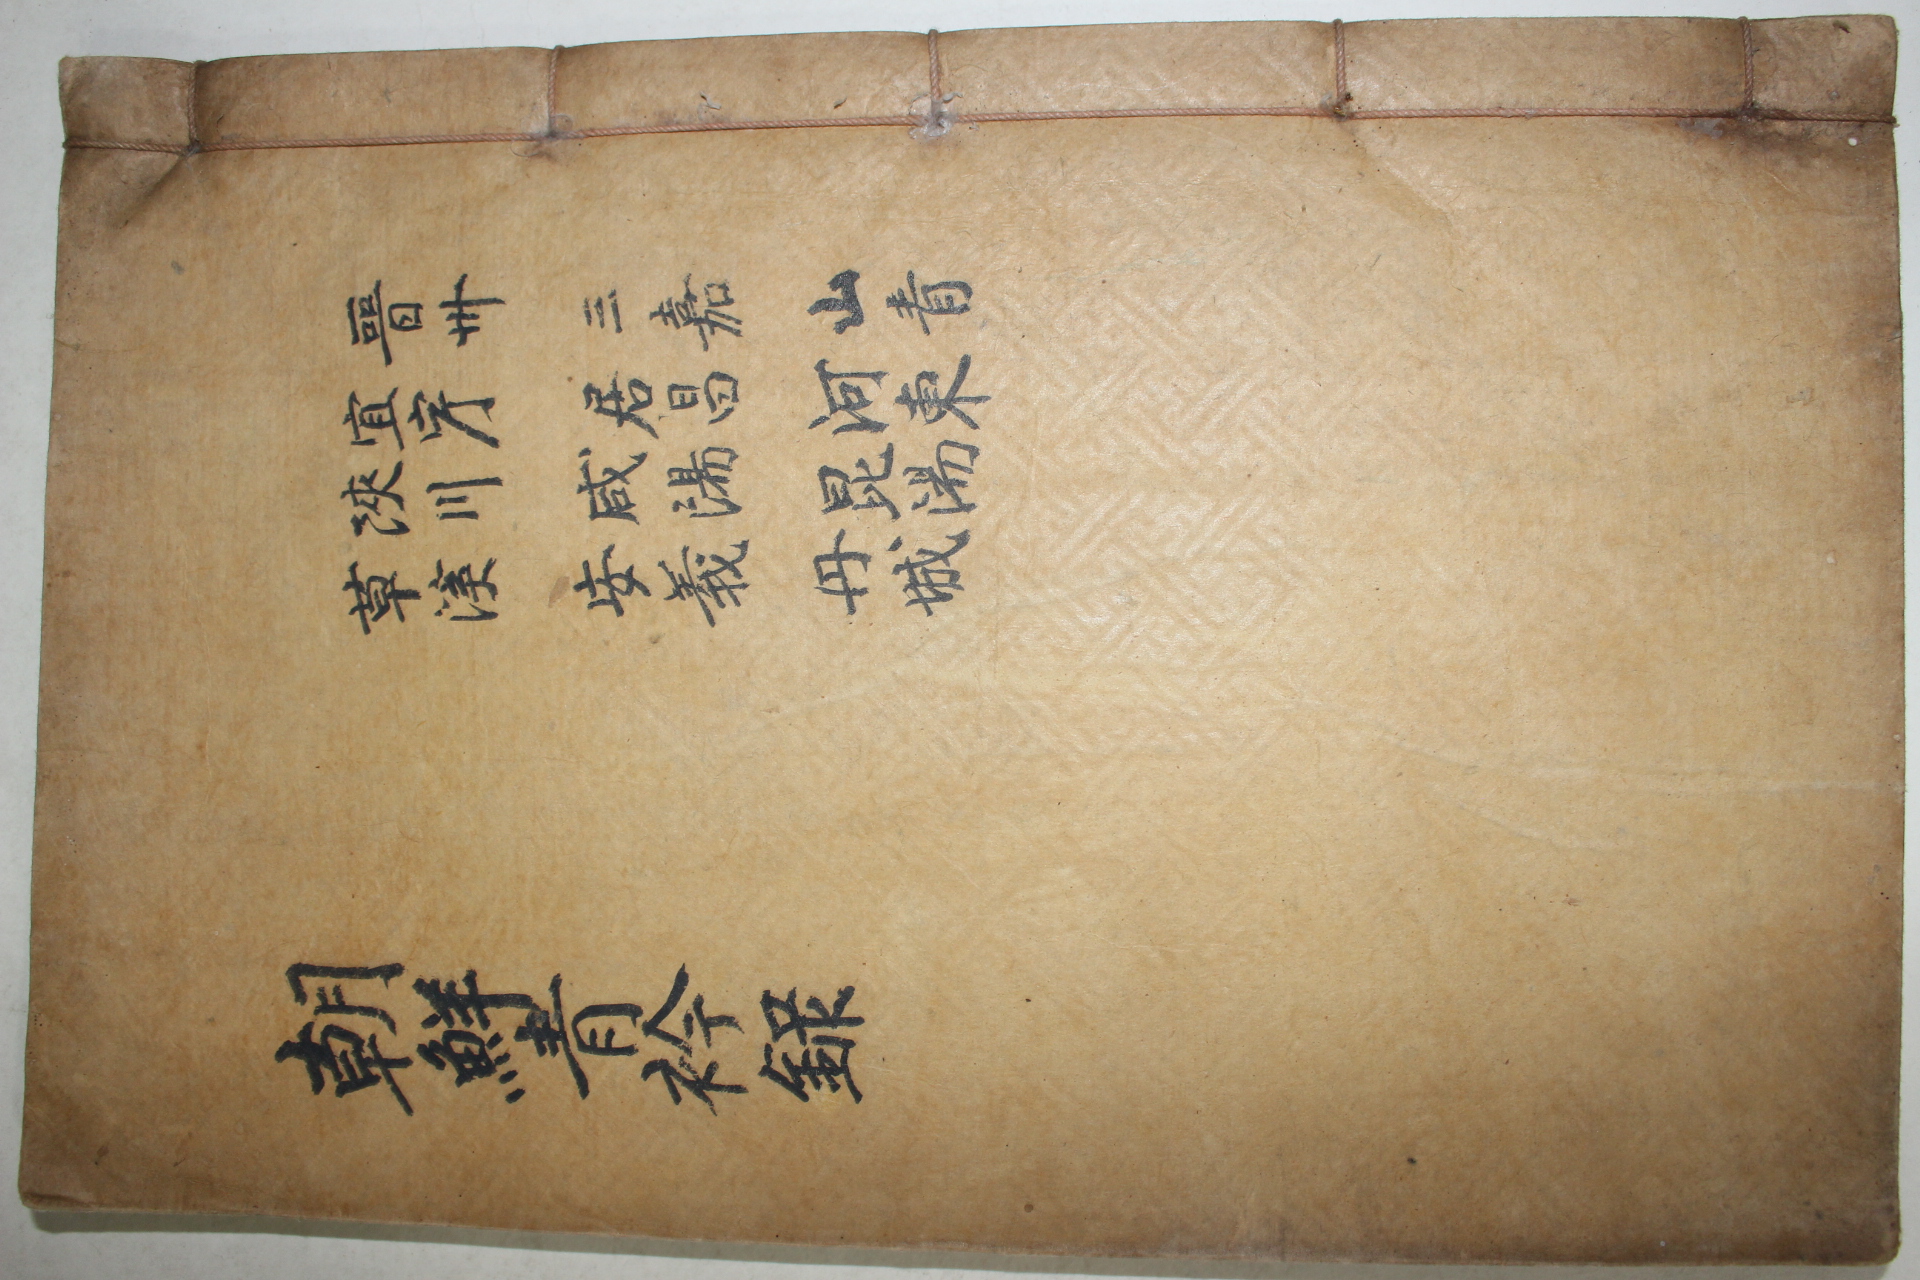 晉州 三嘉 山青
宜寧 居昌 河東
陜川 咸陽 昆陽
草溪 安義 丹城
朝鮮青衿錄